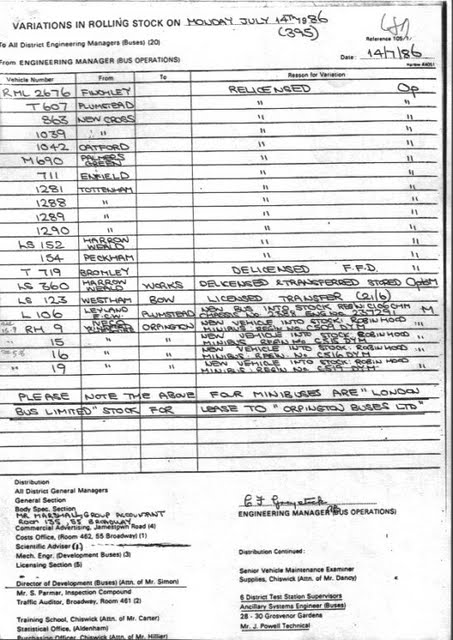 VARIATIONS IN ROLLING STOCK ON MONDAY JULY 14TH 1986
(395)
To All District Engineering Managers (Buses) (20)
Reference 105/1/
From ENGINEERING MANAGER (BUS OPERATIONS)
Date: 14/7/86
Vehicle Number From To Reason for Variation
RML 2676 FINCHLEY RELICENSED Op
T 607 PLUMSTEAD " "
863 NEW CROSS " "
1039 " " "
1042 CATFORD " "
M 690 PALMERS GREEN " "
711 ENFIELD " "
1281 TOTTENHAM " "
1288 " " "
1289 " " "
1290 " " "
LS 152 HARROW WEALD " "
154 PECKHAM " "
T 719 BROMLEY DELICENSED F.F.D. "
LS 360 HARROW WEALD WORKS DELICENSED & TRANSFERRED STORED OpSM
LS 123 WESTHAM BOW LICENSED TRANSFER (2/6) "
L 106 LEYLAND E.C.W. PLUMSTEAD NEW BUS INTO STOCK REGN: C106 CHM
CHASSIS NO. ENG NO. M
RM 9 ORPINGTON NEW VEHICLE INTO STOCK: ROBIN HOOD
MINIBUS. REGN No C509 DYM "
15 " " NEW VEHICLE INTO STOCK: ROBIN HOOD
MINIBUS. REGN No C515 DYM "
16 " " NEW VEHICLE INTO STOCK: ROBIN HOOD
MINIBUS. REGN. No C516 DYM "
19 " " NEW VEHICLE INTO STOCK: ROBIN HOOD
MINIBUS. REGN No. C519 DYM. "
PLEASE NOTE THE ABOVE FOUR MINIBUSES ARE "LONDON
BUS LIMITED" STOCK FOR LEASE TO "ORPINGTON BUSES LTD"
Distribution
All District General Managers
General Section
Body Spec. Section
MR MARSHALL, GROUP ACCOUNTANT
ROOM 135, 55 BROADWAY
Commercial Advertising, Jamestown Road (4)
Costs Office, (Room 462, 55 Broadway) (1)
Scientific Adviser (1)
Mech. Engr. (Development Buses) (3)
Licensing Section (5)
Director of Development (Buses) (Attn. of Mr. Simon)
Mr. S. Parmar, Inspection Compound
Traffic Auditor, Broadway, Room 461 (2)
Training School, Chiswick (Attn. of Mr. Carter)
Statistical Office, (Aldenham)
Purchasing Officer, Chiswick (Attn. of Mr. Hillier)
ENGINEERING MANAGER (BUS OPERATIONS)
Distribution Continued:
Senior Vehicle Maintenance Examiner
Supplies, Chiswick (Attn. of Mr. Dancy)
6 District Test Station Supervisors
Ancillary Systems Engineer (Buses)
28 - 30 Grosvenor Gardens
Mr. J. Powell Technical